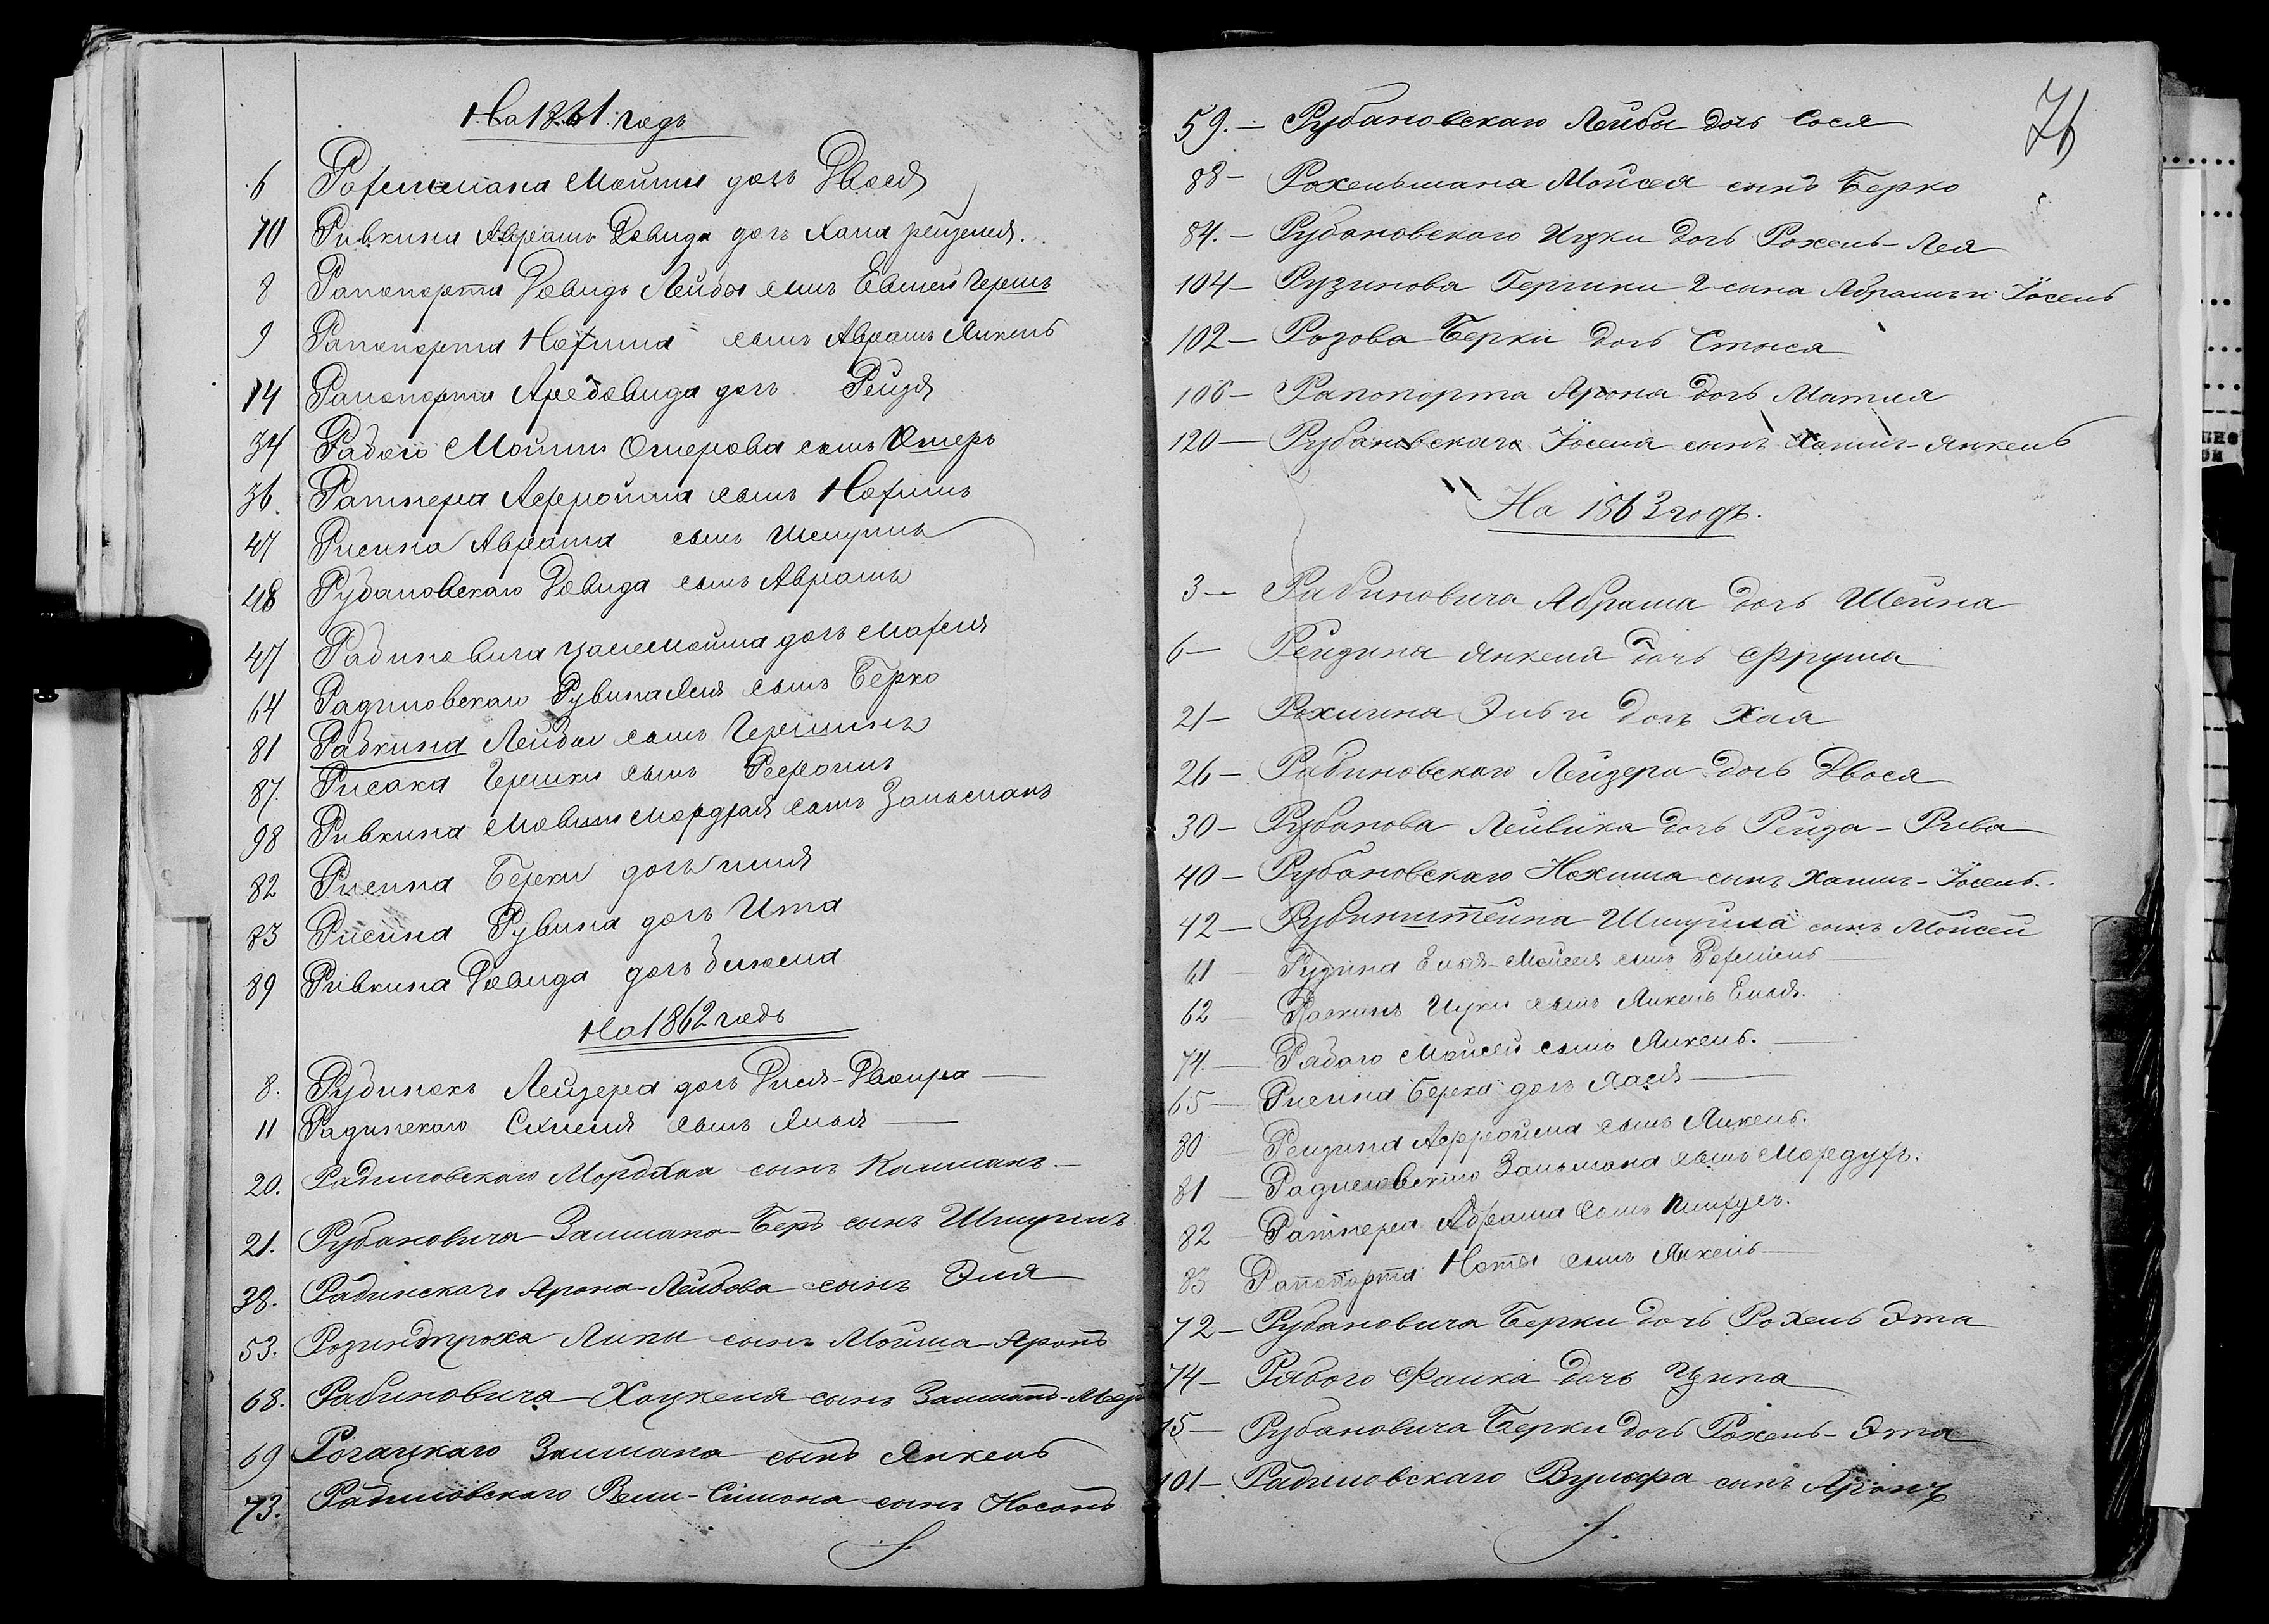 На 1861 годъ
6 Рохельмана Мойши дочь Двося
70 Ривкина Абрамъ Довида дочь Хана рейцеля.
8 Рапопорта Довидъ Лейбы сынъ Евшей Гершъ
9 Рапопорта Нохима сынъ Абрамъ Янкель
14 Рапопорта Аредовида дочь Рейзя
34 Рабого Мойши Омерова сынъ Омеръ
36. Ратнера Афроима сынъ Нохимъ
47 Рисина Абрама сынъ Шмуйла
48 Рубановскаго Довида сынъ Абрамъ
47 Рабиновича дочь Махля
64 Радиловскаго сынъ Берко
81 Рабкина Лейбы сынъ Гершинъ
87. Рисака Гершки сынъ Рефоилъ
98 Ривкина Мовши Мордхая сынъ Зальманъ
82 Рисина Берки дочь
83 Рисина Рувина дочь Ита
89 Ривкина Довида дочь
На 1862 годъ
8. Рубинокъ Лейзера дочь Рися-Двойра —
11 Радинскаго сынъ —
20. Радиловскаго Мордхая сынъ Калманъ. —
21. Рубановича Залмана-Беръ сынъ Шмуилъ
38. Рабинскаго Арона-Лейбова сынъ Эля
53. Липы сынъ Мойша-Аронъ
68. Рабиновича Хацкеля сынъ Залманъ-Меер
69 Рогацкаго Залмана сынъ Янкель
73. Радиловскаго Симона сынъ Носонъ
76
59. — Рубановскаго Лейбы дочь Сося
88 — Рохельмана Мойсея сынъ Берко
84. — Рубановского Ицки дочь Рохель-Лея
104 — Рузинова Гершки 2 сына Абрамъ и Іосель
102 — Розова Берки дочь Стыся
106 — Рапопорта Арона дочь Матля
120 — Рубановскаго Іоселя сынъ Хаимъ-Янкель
На 1863 годъ.
3 — Рабиновича Абрама дочь Шейна
6 — Рейдина Янкеля дочь Фрума
21 — Рохлина Эльи дочь Хая
26 — Рабиновскаго Лейзера дочь Двося
30 — Рубанова Лейвика дочь Рейза-Рива
40 — Рубановскаго Нохима сынъ Хаимъ-Іосель.
42 — Рубинштейна Шмуйла сынъ Мойсей
61 — Рудина Мойсея сынъ —
62 — Раскинъ Ицки сынъ Янкель
74. — Рабого Мойсей сынъ Янкель. —
65 — Рисина Берка дочь Хася —
80 — Рейдина Афроима сынъ Янкель.
81 — Радиловскаго Зальмана сынъ Мордухъ.
82 — Ратнера Абрама сынъ Пинхусъ.
83 Рапопорта Ноты сынъ Янкель —
72 — Рубановича Берки дочь Рохель Эта
74 — Рябого Файка дочь Ципа
75 — Рубановича Берки дочь Рохель-Эта
101 — Радиловскаго Вульфа сынъ Аронъ